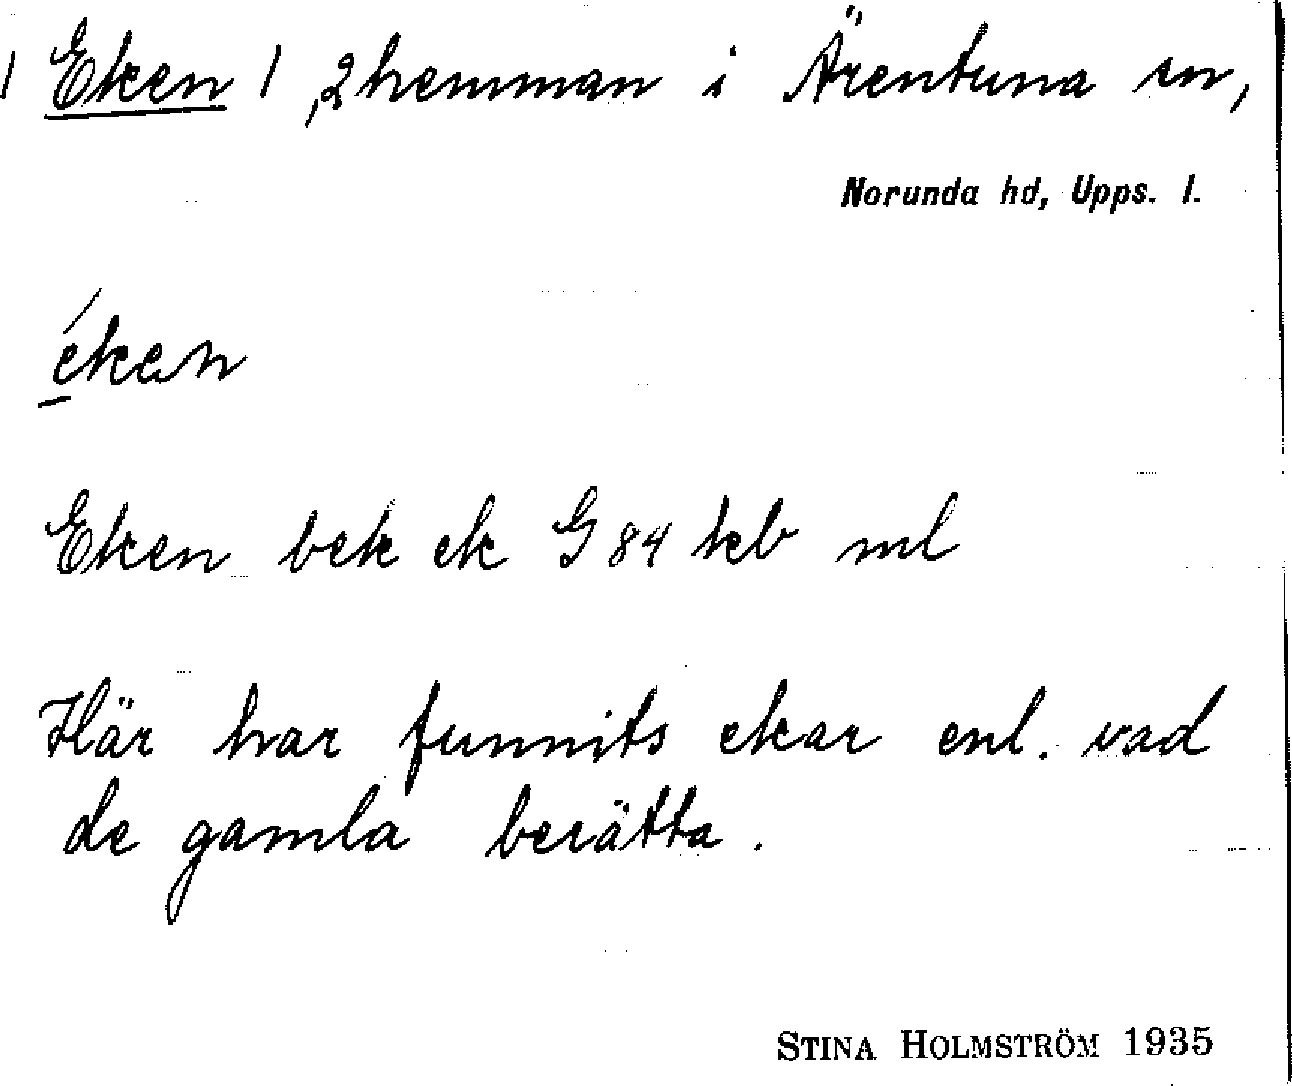 / Eken /, 2 hemman i Ärentuna sn,
Norunda hd, Upps. l.
éken
Eken bek ek G 84 kb ml
Här har funnits ekar enl. vad
de gamla berätta.
STINA HOLMSTRÖM 1935